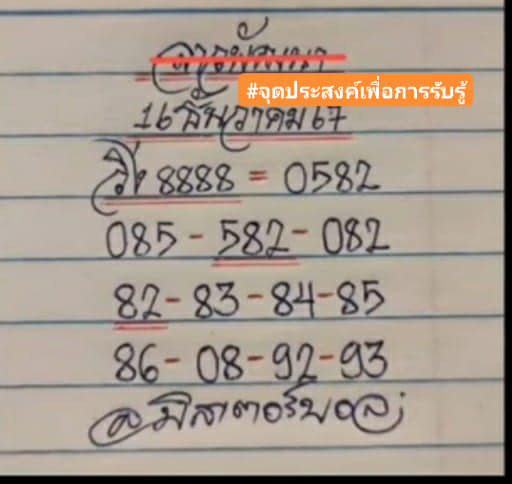 #จุดประสงค์เพื่อการรับรู้
16 ธันวาคม 67
วิ่ง 8888 = 0582
085 - 582 - 082
82 - 83 - 84 - 85
86 - 08 - 92 - 93
@มิสเตอร์บอล